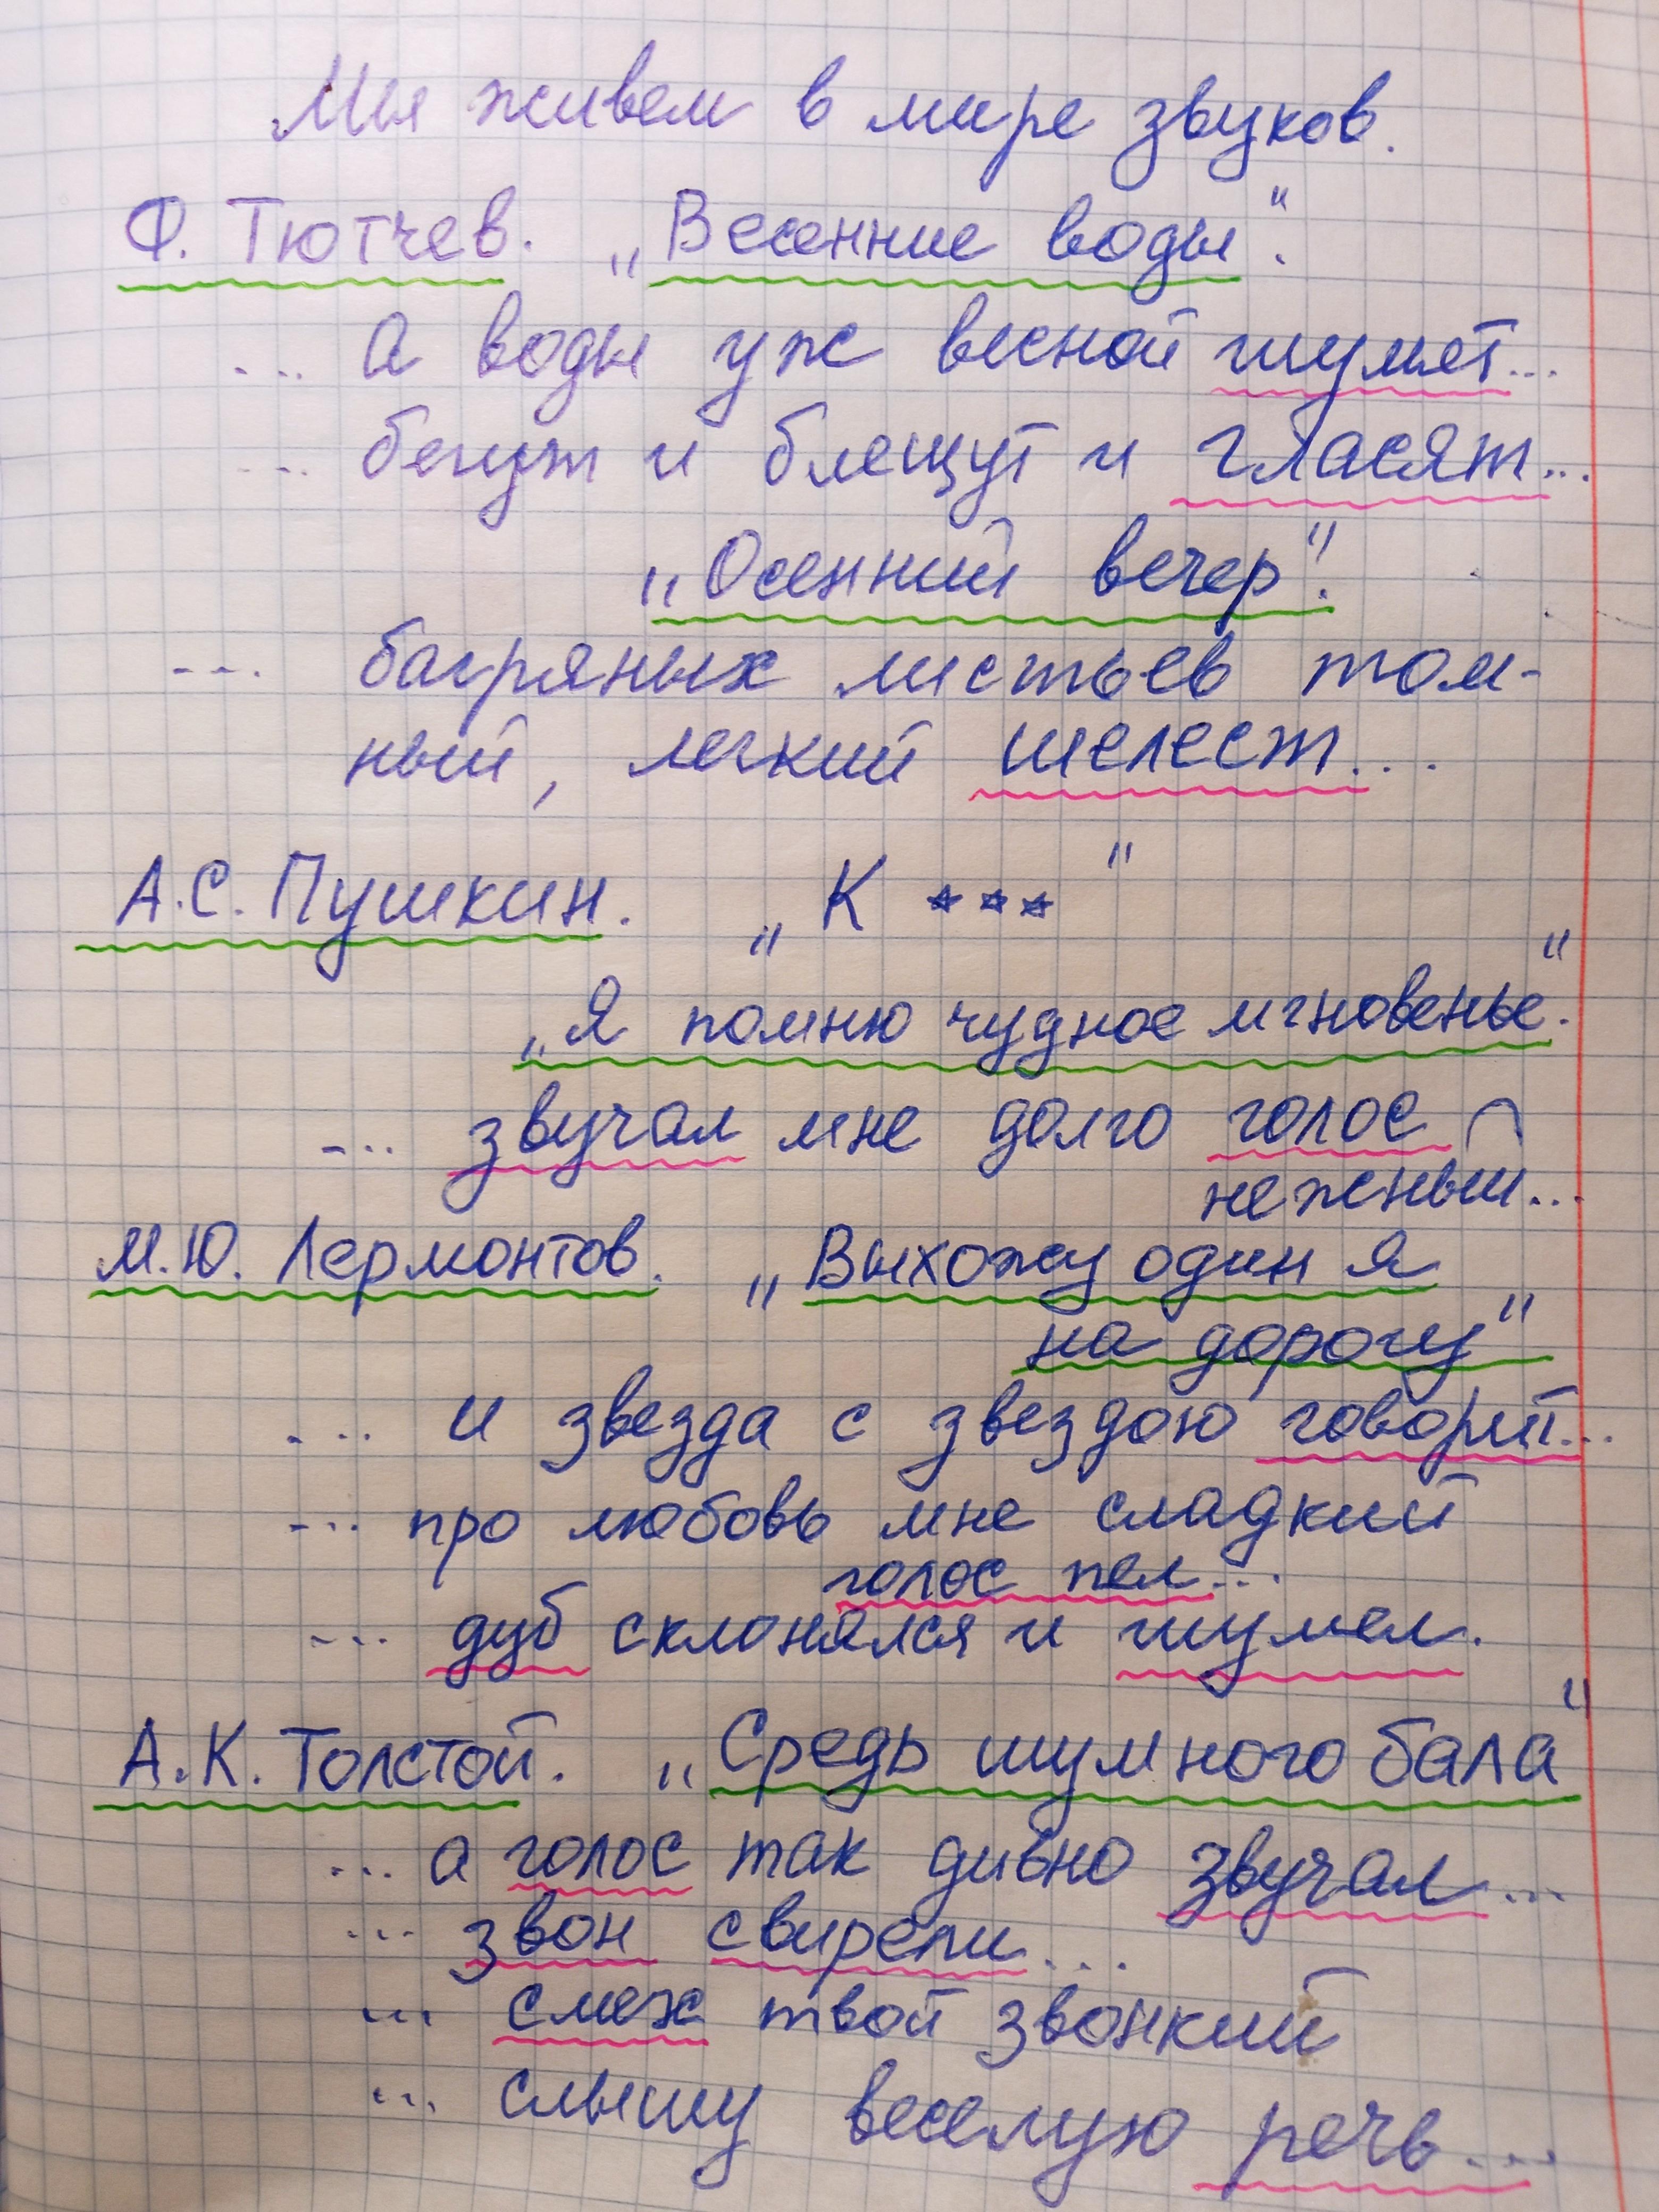 Мы живем в мире звуков.
Ф. Тютчев. „Весенние воды“.
... а воды уж весной шумят...
... бегут и блещут и гласят...
„Осенний вечер“.
... багряных листьев том-
ный, легкий шелест...
А.С. Пушкин. „К ***“
„Я помню чудное мгновенье“.
... звучал мне долго голос
нежный...
М.Ю. Лермонтов. „Выхожу один я
на дорогу“
... и звезда с звездою говорит...
... про любовь мне сладкий
голос пел...
... дуб склонялся и шумел.
А.К. Толстой. „Средь шумного бала“
... а голос так дивно звучал...
... звон свирели...
... смех твой звонкий
... слышу веселую речь...